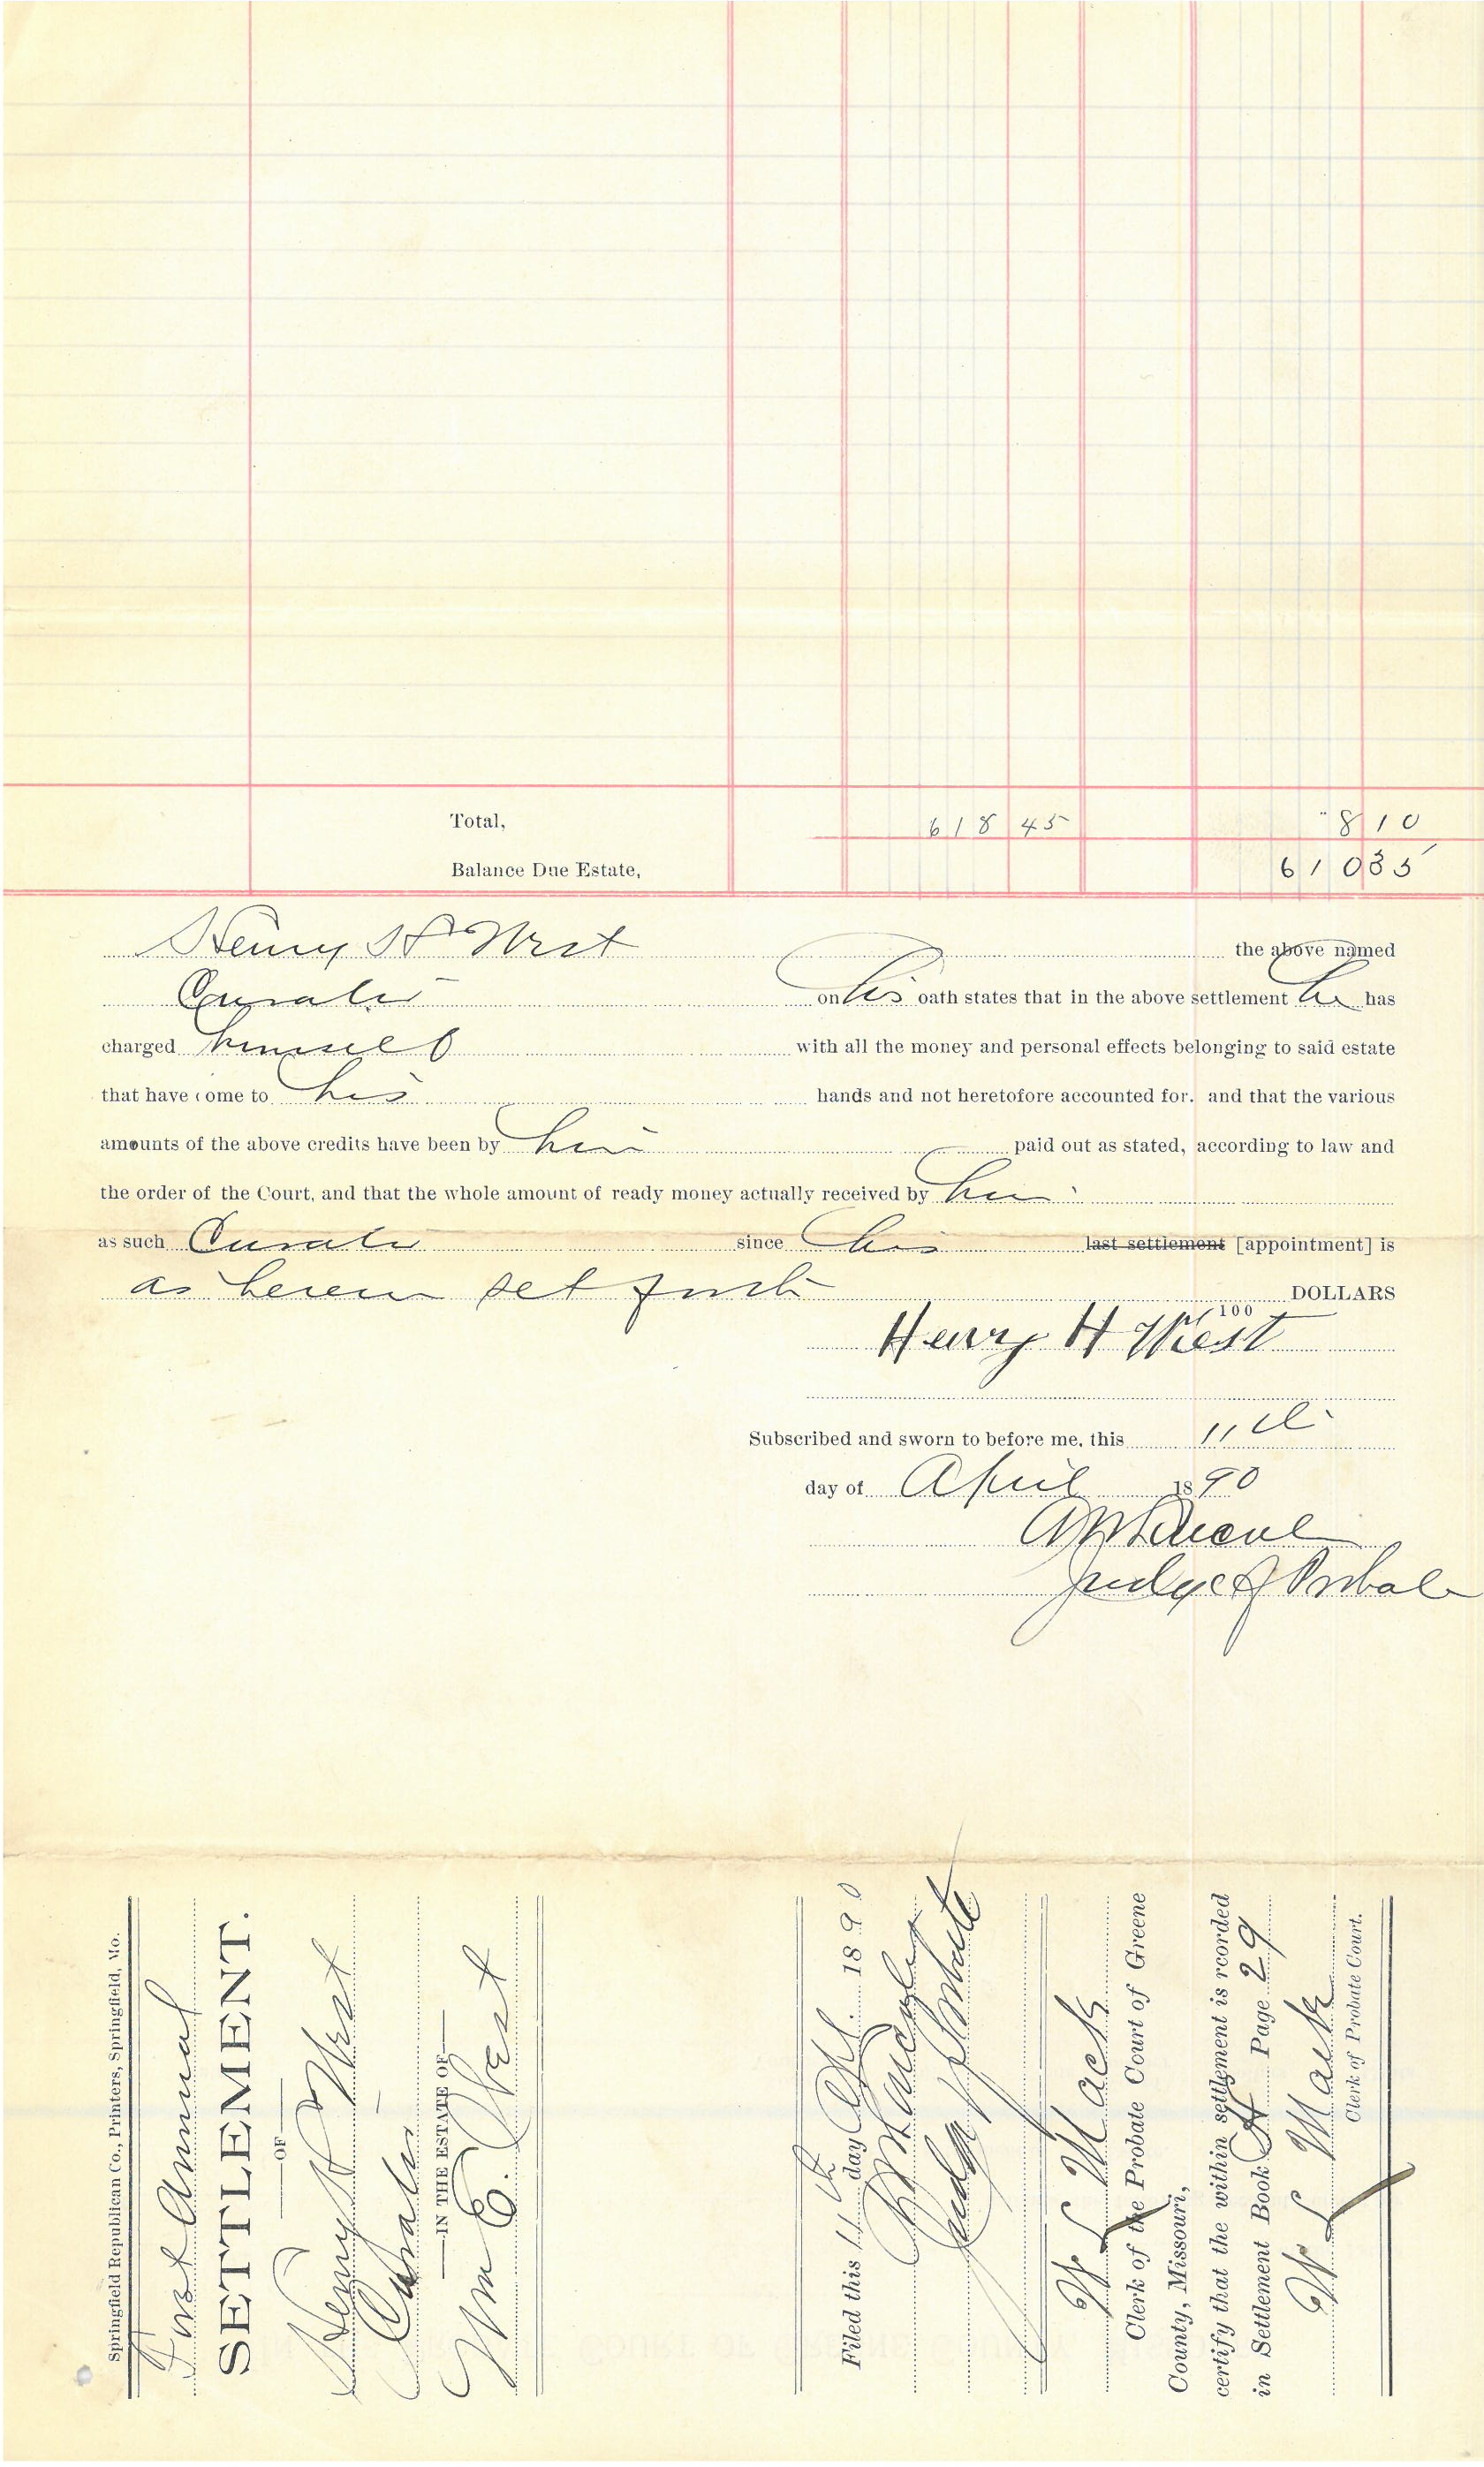 Total, 618 45 8 10
Balance Due Estate, 610 35
Henry H West the above named
Curator on his oath states that in the above settlement he has
charged himself with all the money and personal effects belonging to said estate
that have come to his hands and not heretofore accounted for. and that the various
amounts of the above credits have been by him paid out as stated, according to law and
the order of the Court, and that the whole amount of ready money actually received by him
as such Curator since his last settlement [appointment] is
as herein set forth DOLLARS
100
Henry H West
Subscribed and sworn to before me, this 11th
day of April 1890
Judge of Probate
Springfield Republican Co., Printers, Springfield, Mo.
First Annual
SETTLEMENT.
—OF—
Henry H West
Curator
—IN THE ESTATE OF—
Wm E. West
Filed this 11th day Apl. 1890
Judge of Probate
W L Mack
Clerk of the Probate Court of Greene
County, Missouri,
certify that the within settlement is rcorded
in Settlement Book H Page 29
W L Mack
Clerk of Probate Court.